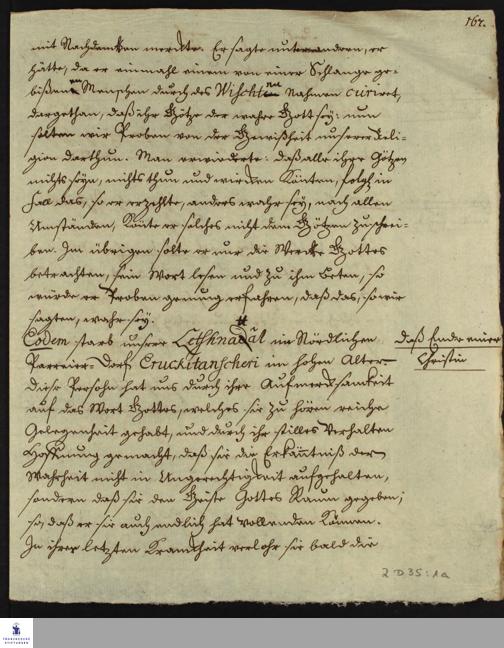 167.
mit Nachdencken merckte. Er sagte unter andern, er
hätte, da er einmahl einen von einer Schlange ge-
bißenen Menschen durch des Wischtnu Nahmen curiret,
dargethan, daß ihr Götze der wahre Gott sey: nun
solten wir Proben von der Gewißheit unserer Reli-
gion darthun. Man erwiederte: daß alle ihre Götzen
nichts seyn, nichts thun und wircken könten, folgl. in
Fall das, so er erzehlte, anders wahr sey, nach allen
Umständen, könte er solches nicht dem Götzen zuschrei-
ben. Im übrigen solte er nur die Wercke Gottes
betrachten, sein Wort lesen und zu ihm beten, so
würde er Proben genung erfahren, daß das, so wir
sagten, wahr sey.
Eodem starb unsere im Nördlichen
das Ende einer
Christin
Parreier-Dorf Eruckitanscheri im hohen Alter.
Diese Persohn hat uns durch ihre Aufmercksamkeit
auf das Wort Gottes, welches sie zu hören reiche
Gelegenheit gehabt, und durch ihr stilles Verhalten
Hoffnung gemacht, daß sie die Erkäntniß der
Wahrheit nicht in Ungerechtigkeit aufgehalten,
sondern daß sie dem Geiste Gottes Raum gegeben;
so, daß er sie auch endlich hat vollenden können.
In ihrer letzten Kranckheit verlohr sie bald die
2 D 35 : 1a
FRANCKESCHE
STIFTUNGEN